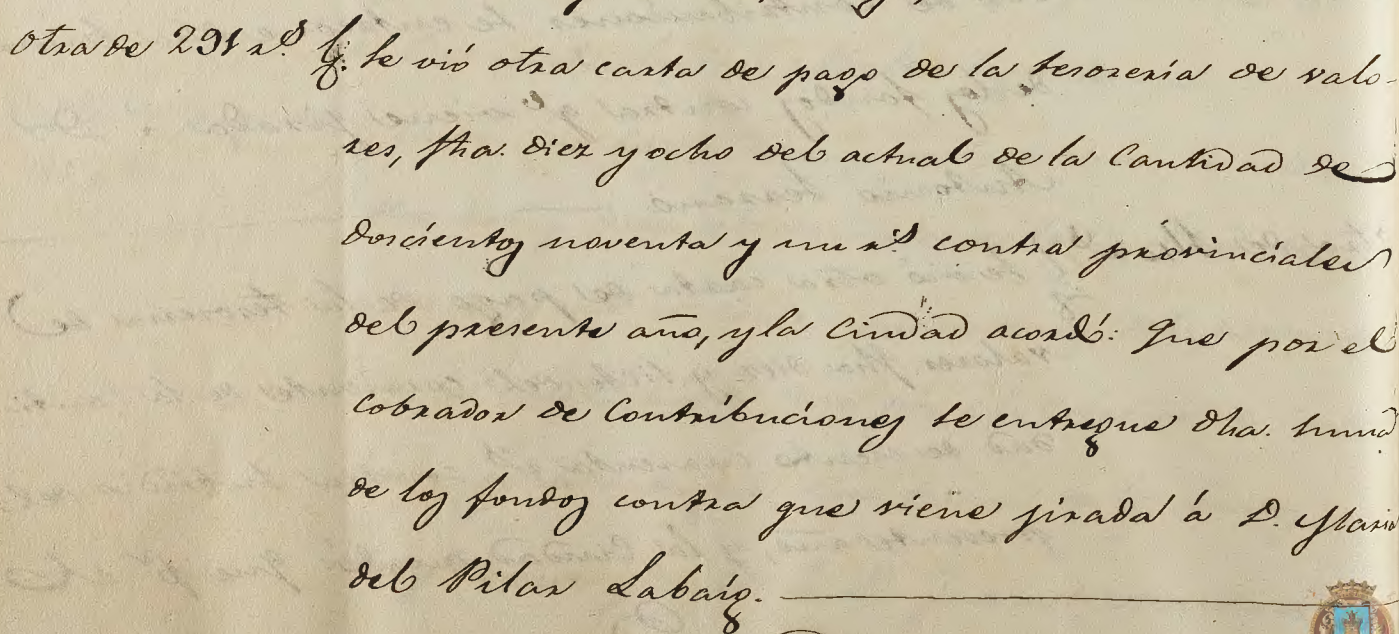 Otra de 291 r.s
Se vió otra carta de pago de la tesorería de valo-
res, fha. diez y ocho del actual de la Cantidad de
doscientos noventa y un r.s contra provinciales
del presente año, y la Ciudad acordó: Que por el
cobrador de Contribuciones se entregue dha. suma
de los fondos contra que viene jirada á D. Maria
del Pilar Labaig.